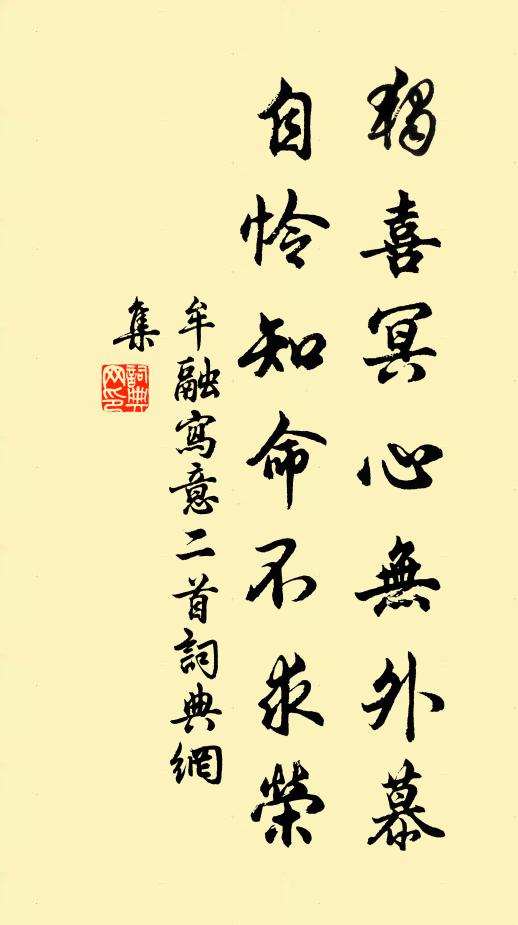 獨喜冥心無外慕
自怜知命不求榮
牟融寫意二首詞典網
集
詞典网印